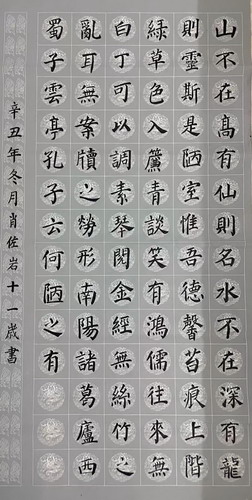 山不在高有仙則名水不在深有龍
則靈斯是陋室惟吾德馨苔痕上階
綠草色入簾青談笑有鴻儒往來無
白丁可以調素琴閱金經無絲竹之
亂耳無案牘之勞形南陽諸葛廬西
蜀子雲亭孔子云何陋之有
辛丑年冬月肖佐岩十一歲書